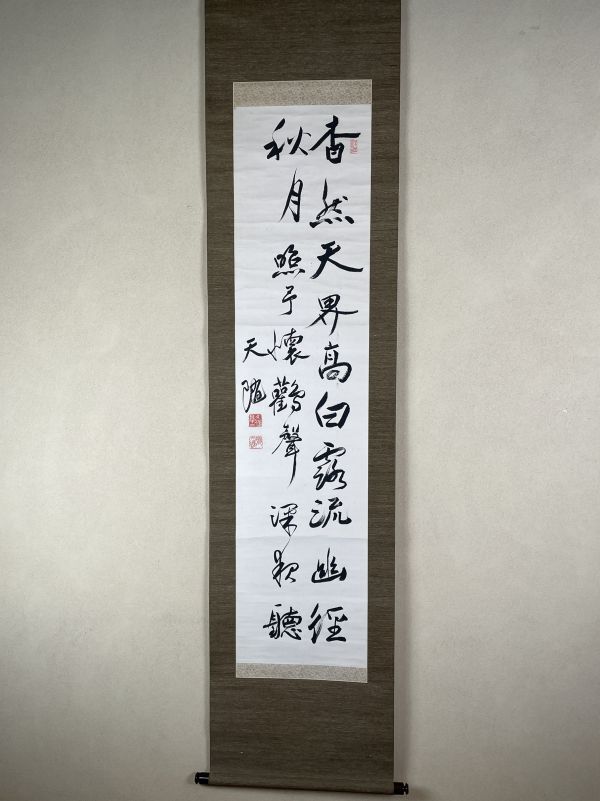 杳然天界高白露流幽徑
秋月照予懷鸛聲深夜聽
天